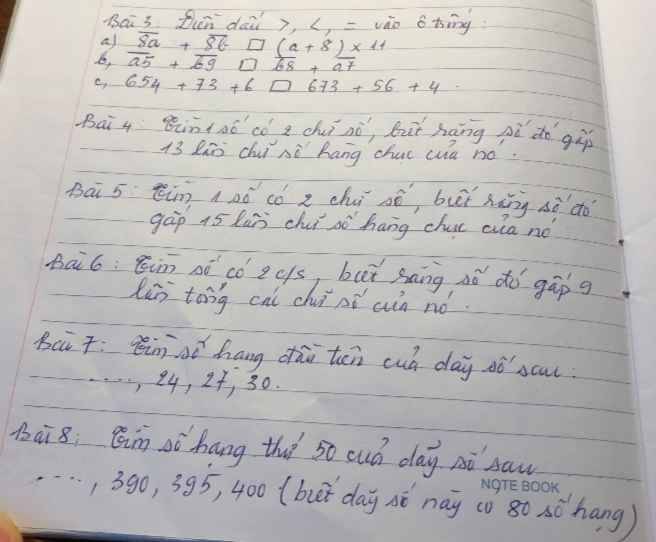 Bài 3: Điền dấu >, <, = vào ô trống:
a) 8a + 8b □ (a + 8) × 11
b, a5 + b9 □ b8 + a7
c, 654 + 73 + 6 □ 673 + 56 + 4.
Bài 4: Tìm 1 số có 2 chữ số, biết rằng số đó gấp
13 lần chữ số hàng chục của nó.
Bài 5: Tìm 1 số có 2 chữ số, biết rằng số đó
gấp 15 lần chữ số hàng chục của nó
Bài 6: Tìm số có 2 c/s, biết rằng số đó gấp 9
lần tổng các chữ số của nó.
Bài 7: Tìm số hạng đầu tiên của dãy số sau:
....., 24, 27, 30.
Bài 8: Tìm số hạng thứ 50 của dãy số sau
....., 390, 395, 400 (biết dãy số này có 80 số hạng)
NOTE BOOK